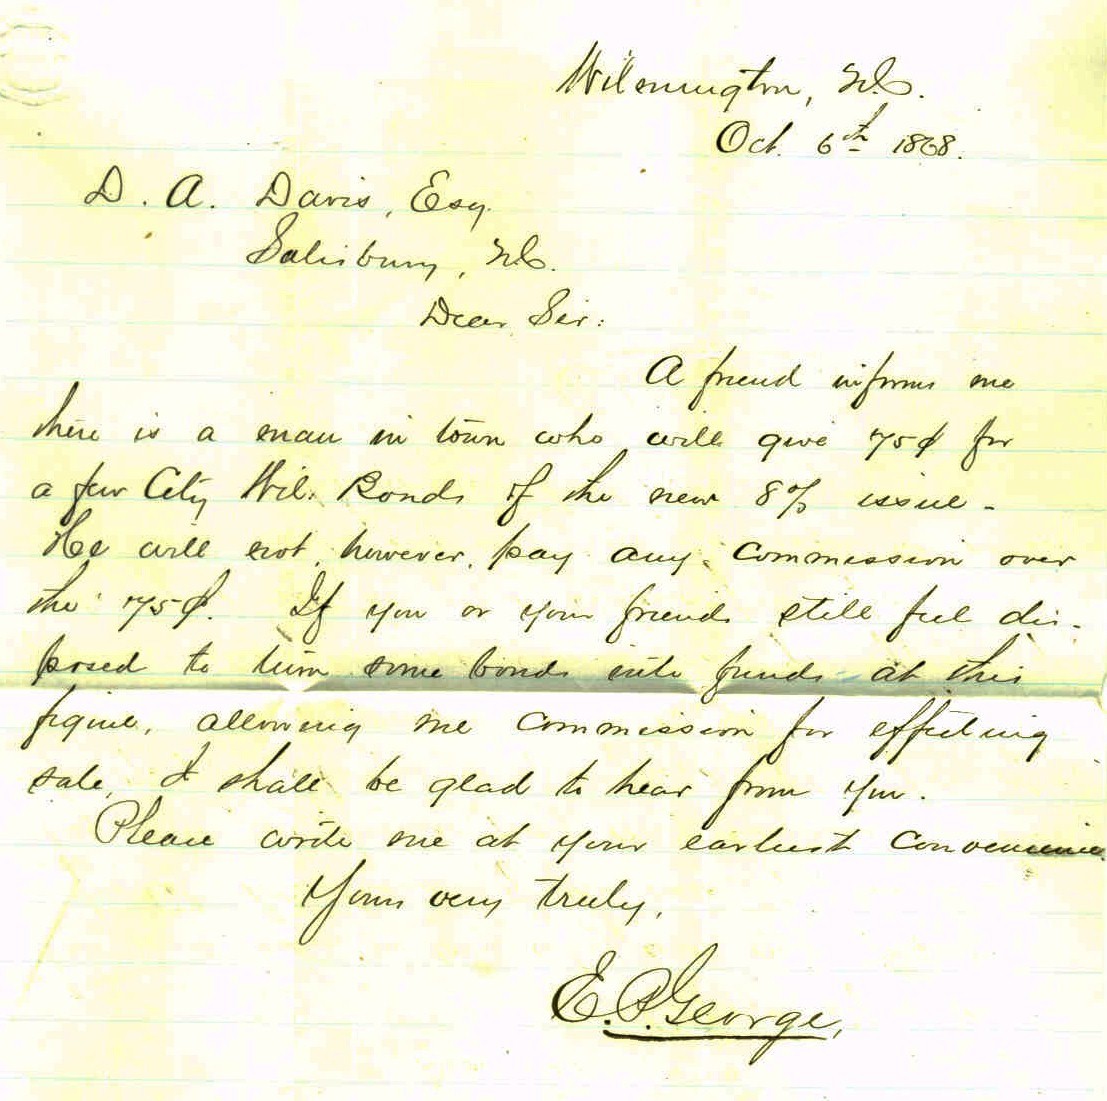 Wilmington, N.C.
Oct. 6th 1868.
D. A. Davis, Esq.
Salisbury, N.C.
Dear Sir:
A friend informs me
there is a man in town who will give 75¢ for
a few City Wil. Bonds of the new 8% issue -
He will not, however, pay any commission over
the 75¢. If you or your friends still feel dis-
posed to turn some bonds into funds at this
figure, allowing me commission for effecting
sale, I shall be glad to hear from you.
Please write me at your earliest convenience
Yours very truly,
E. P. George,